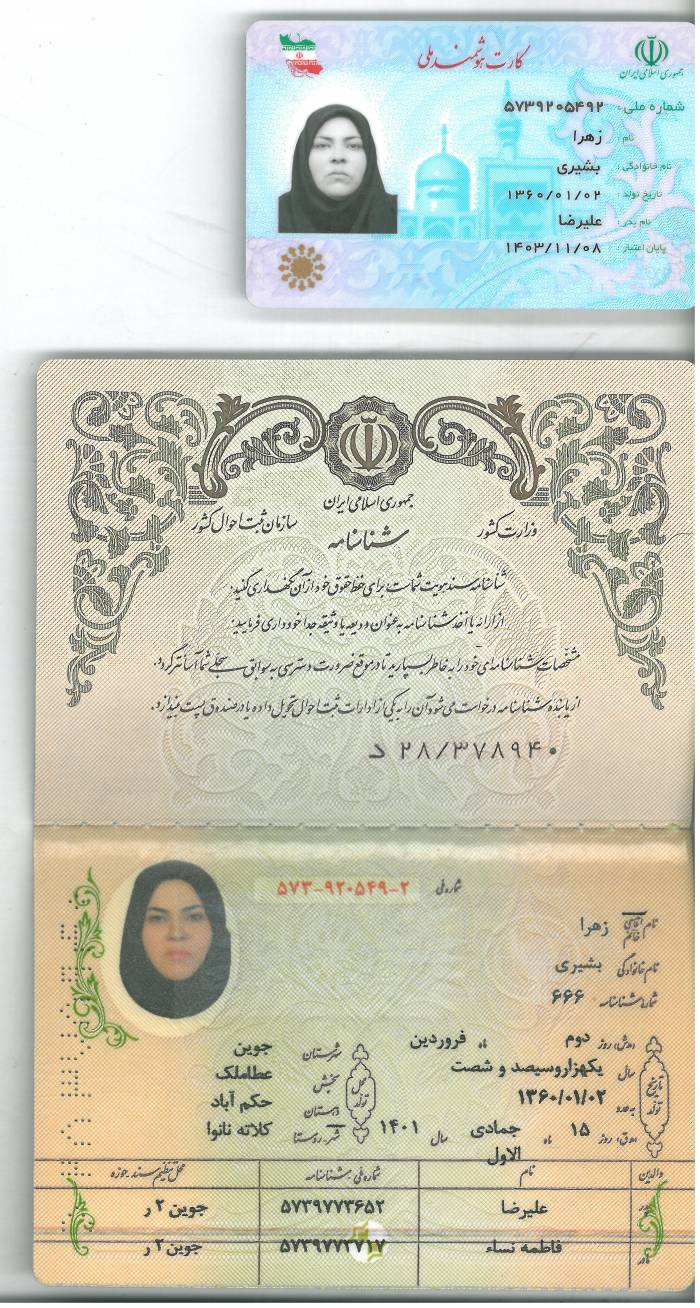 کارت هوشمند ملی
جمهوری اسلامی ایران
شماره ملی: ۵۷۳۹۲۰۵۴۹۲
نام: زهرا
نام خانوادگی: بشیری
تاریخ تولد: ۱۳۶۰/۰۱/۰۲
نام پدر: علیرضا
پایان اعتبار: ۱۴۰۳/۱۱/۰۸
جمهوری اسلامی ایران
وزارت کشور
سازمان ثبت احوال کشور
شناسنامه
شناسنامه سند هویت شماست برای حفظ حقوق خود از آن نگهداری کنید.
از ارائه یا اخذ شناسنامه به عنوان ودیعه یا وثیقه جدا خودداری فرمایید.
مشخصات شناسنامه‌ای خود را به خاطر بسپارید تا در موقع ضرورت دسترسی به سوابق سجلی شما آسانتر گردد.
از یابنده شناسنامه درخواست می‌شود آن را به یکی از ادارات ثبت احوال تحویل داده یا در صندوق پست بیندازد.
د ۲۸/۳۷۸۹۴۰
شماره ملی ۵۷۳-۹۲۰۵۴۹-۲
نام آقای خانم زهرا
نام خانوادگی بشیری
شماره شناسنامه ۶۶۶
تاریخ تولد
(ه‍.ش) روز دوم ماه فروردین
سال یکهزاروسیصد و شصت
به عدد ۱۳۶۰/۰۱/۰۲
(ه‍.ق) روز ۱۵ ماه جمادی الاول سال ۱۴۰۱
محل تولد
شهرستان جوین
بخش عطاملک
دهستان حکم آباد
شهر-روستا کلاته نانوا
والدین نام شماره ملی / شناسنامه محل تنظیم سند حوزه
پدر علیرضا ۵۷۳۹۷۷۳۶۵۲ جوین ۲ ر
مادر فاطمه نساء ۵۷۳۹۷۷۳۷۱۷ جوین ۲ ر